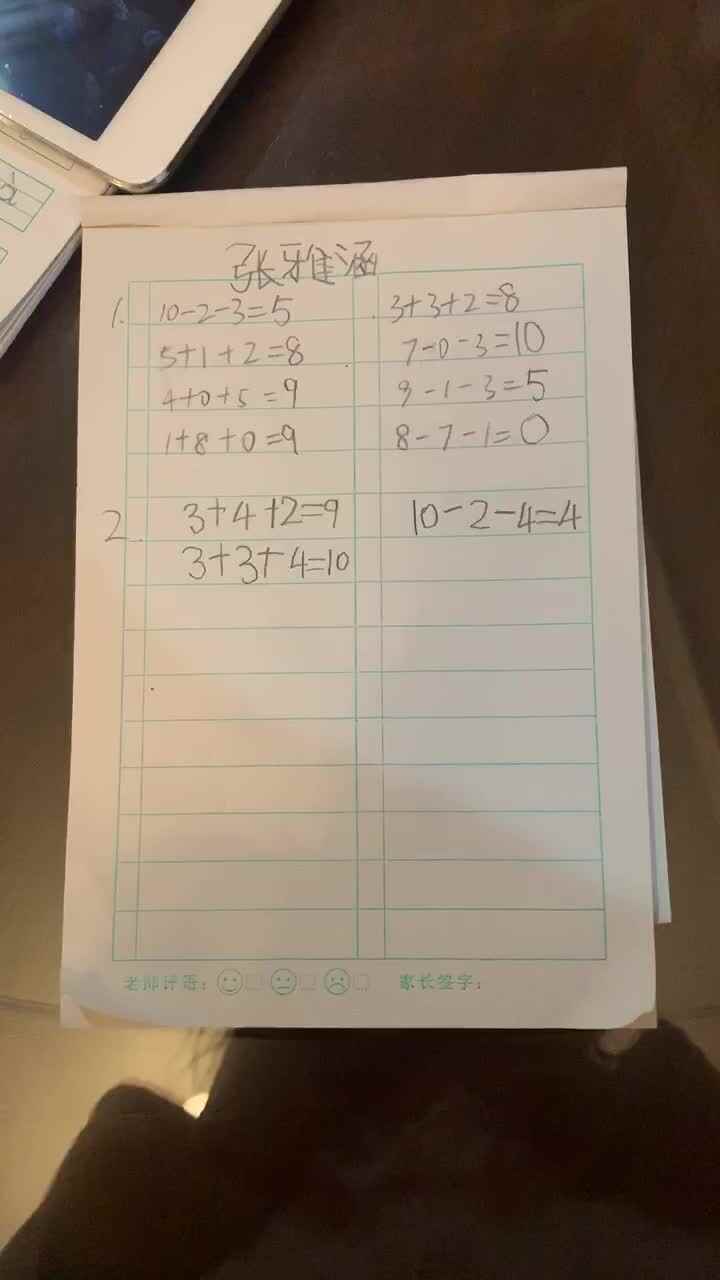 张雅涵
1. 10-2-3=5 3+3+2=8
5+1+2=8 7-0-3=10
4+0+5=9 9-1-3=5
1+8+0=9 8-7-1=0
2. 3+4+2=9 10-2-4=4
3+3+4=10
老师评语： 家长签字：